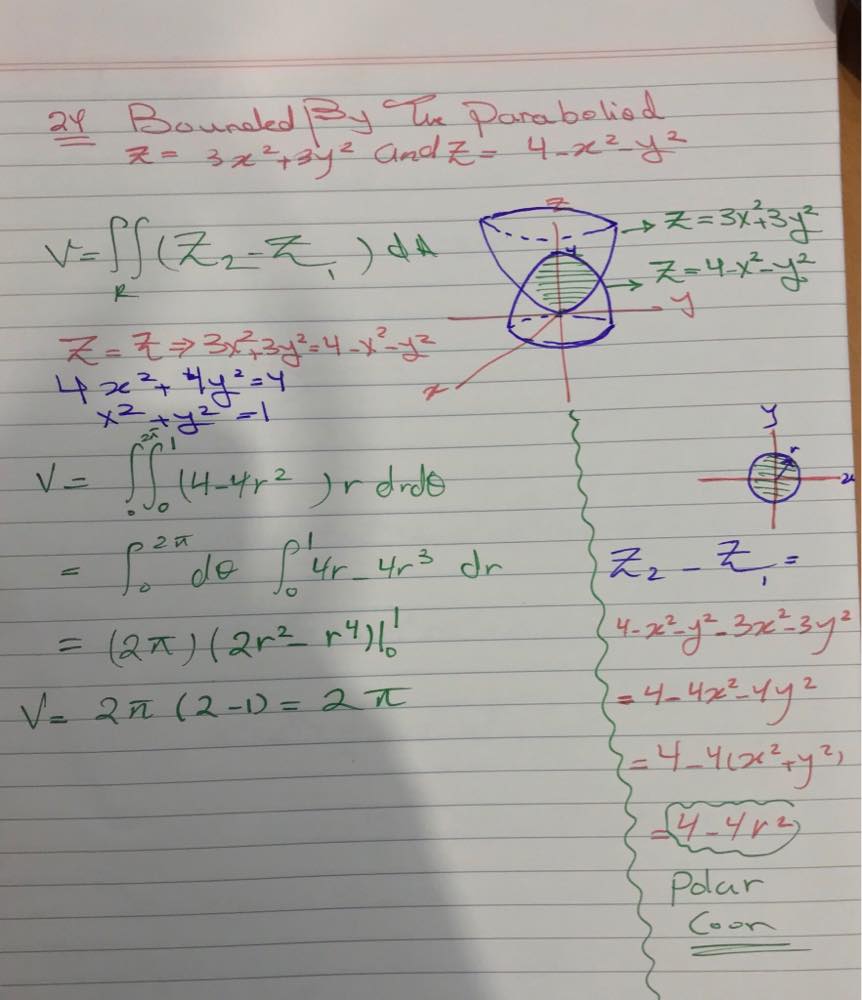 24 Bounded By The Paraboliod
z = 3x²+3y² and z = 4-x²-y²
V = ∬_R (Z₂ - Z₁) dA
z
4
→ z = 3x²+3y²
→ z = 4-x²-y²
y
x
Z = Z ⇒ 3x²+3y² = 4-x²-y²
4x² + 4y² = 4
x² + y² = 1
V = ∫₀^2π ∫₀^1 (4-4r²) r dr dθ
= ∫₀^2π dθ ∫₀^1 4r - 4r³ dr
= (2π) (2r² - r⁴)|₀^1
V = 2π (2-1) = 2π
y
r
x
Z₂ - Z₁ =
4-x²-y²-3x²-3y²
= 4-4x²-4y²
= 4-4(x²+y²)
= 4-4r²
Polar
Coor